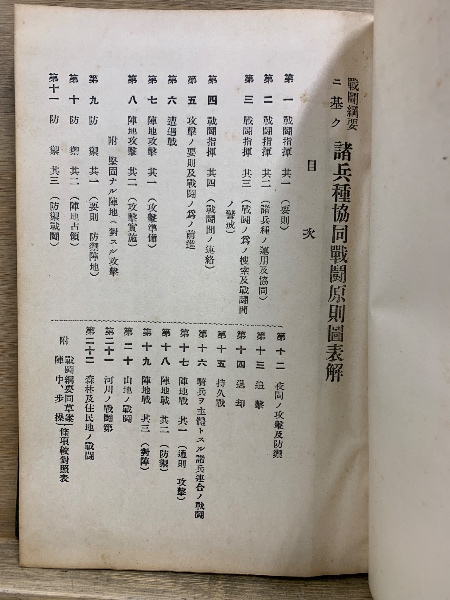 戰鬪綱要
ニ基ク
諸兵種協同戰鬪原則圖表解
目次
第一 戰鬪指揮 其一(要則)
第二 戰鬪指揮 其二(諸兵種ノ運用及協同)
第三 戰鬪指揮 其三(戰鬪ノ爲ノ搜索及戰鬪間
ノ警戒)
第四 戰鬪指揮 其四(戰鬪間ノ連絡)
第五 攻擊ノ要則及戰鬪ノ爲ノ前進
第六 遭遇戰
第七 陣地攻擊 其一(攻擊準備)
第八 陣地攻擊 其二(攻擊實施)
附 堅固ナル陣地ニ對スル攻擊
第九 防禦 其一(要則 防禦陣地)
第十 防禦 其二(陣地占領)
第十一 防禦 其三(防禦戰鬪)
第十二 夜間ノ攻擊及防禦
第十三 追擊
第十四 退却
第十五 持久戰
第十六 騎兵ヲ主體トスル諸兵連合ノ戰鬪
第十七 陣地戰 其一(通則 攻擊)
第十八 陣地戰 其二(防禦)
第十九 陣地戰 其三(對陣)
第二十 山地ノ戰鬪
第二十一 河川ノ戰鬪
第二十二 森林及住民地ノ戰鬪
附 戰鬪綱要同草案
陣中、步操 條項較對照表